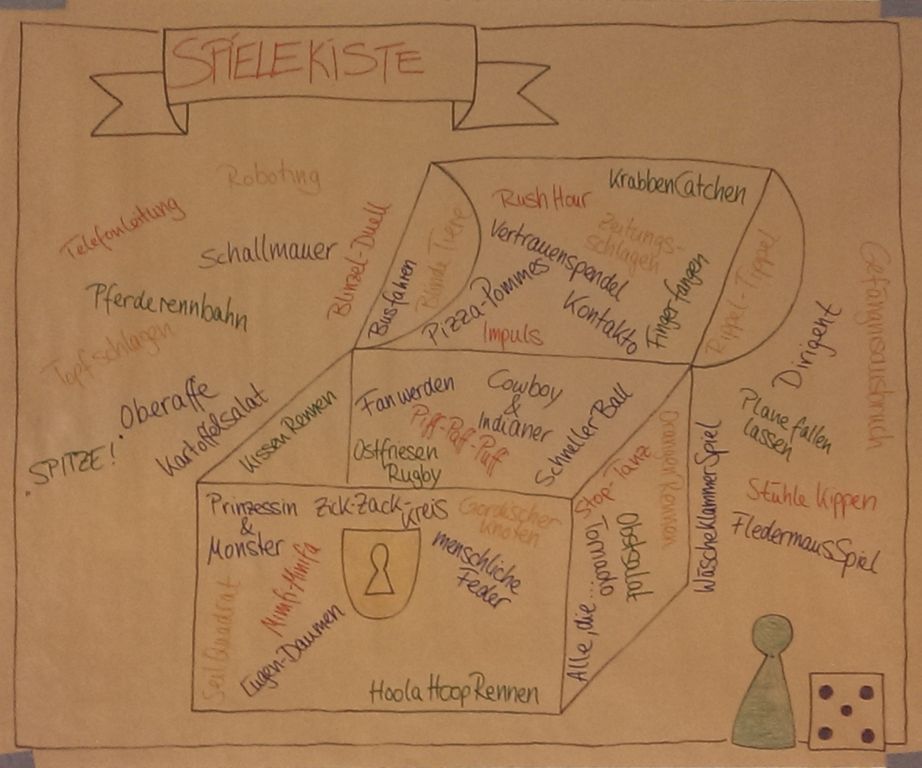 SPIELEKISTE
Roboting
Telefonleitung
Schallmauer
Blinzel-Duell
Pferderennbahn
Topfschlagen
Oberaffe
Kartoffelsalat
SPITZE!
Busfahren
Blinde Tiere
Rush Hour
KrabbenCatchen
Zeitungs-
schlagen
Vertrauenspendel
Pizza-Pommes
Kontakto
Fingerfangen
Impuls
Rippel-Tippel
Gefängnisausbruch
Dirigent
Plane fallen
lassen
Stühle Kippen
FledermausSpiel
WäscheklammerSpiel
Kissen Rennen
Fan werden
Cowboy
&
Indianer
Piff-Paff-Puff
Ostfriesen
Rugby
Schneller Ball
Stop-Tanz
Orangen Rennen
Obstsalat
Alle, die... Tornado
Prinzessin
&
Monster
Zick-Zack-Kreis
Gordischer
Knoten
menschliche
Feder
Mimfi-Mimfa
Seil Quadrat
Lügen-Daumen
Hoola Hoop Rennen